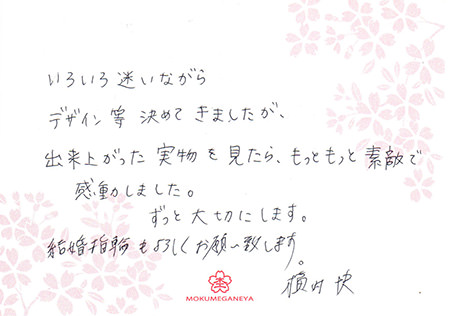 いろいろ迷いながら
デザイン等決めてきましたが、
出来上がった実物を見たら、もっともっと素敵で
感動しました。
ずっと大切にします。
結婚指輪もよろしくお願い致します。
MOKUMEGANEYA